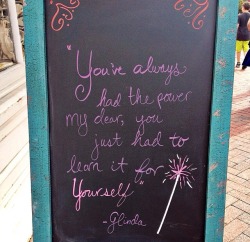 "You've always
had the power
my dear, you
just had to
learn it for
Yourself"
-Glinda